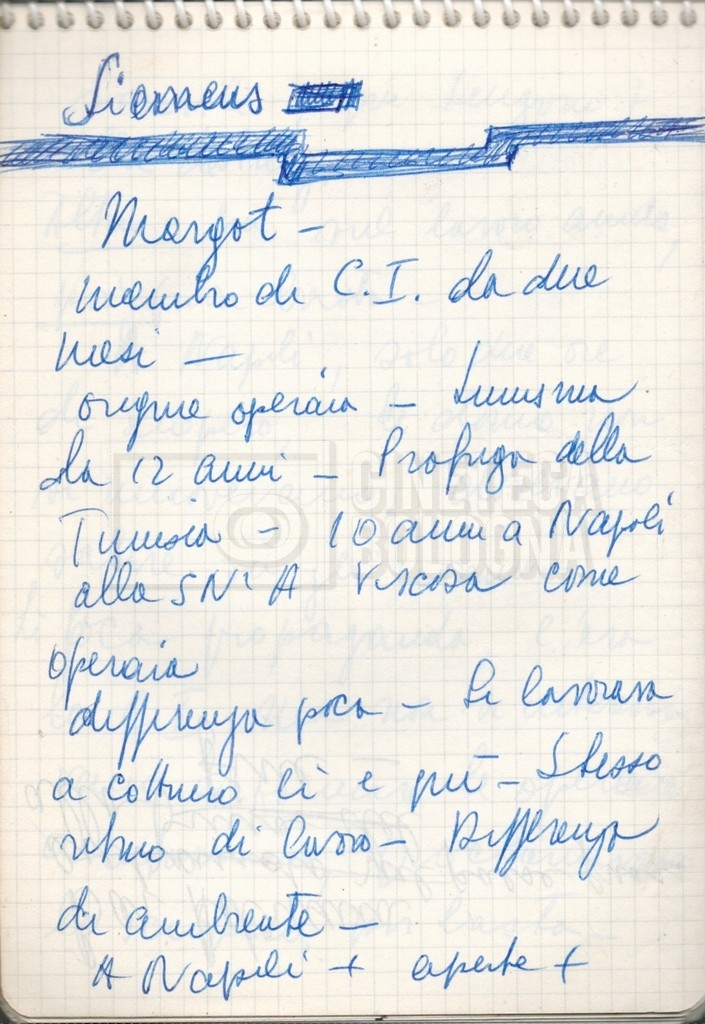 Siemens
Margot –
membro di C.I. da due
mesi –
origine operaia –
da 12 anni – Profuga della
Tunisia – 10 anni a Napoli
alla SNIA Viscosa come
operaia
differenza poca – Si lavorava
a cottimo lì e qui – Stesso
ritmo di lavoro – Differenza
di ambiente –
A Napoli + aperte +
CINETECA
BOLOGNA